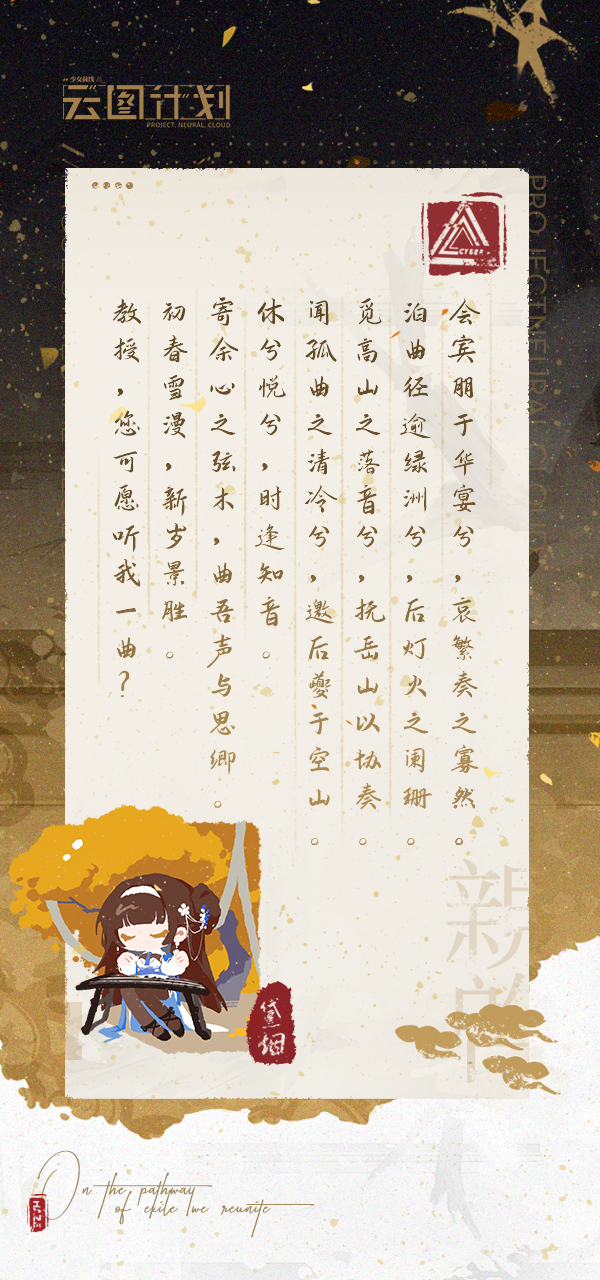 少女前线
云图计划
PROJECT NEURAL CLOUD
CYBER
会宾朋于华宴兮，哀繁奏之寡然。
泊曲径逾绿洲兮，后灯火之阑珊。
觅高山之落音兮，抚岳山以协奏。
闻孤曲之清冷兮，邀后夔于空山。
休兮悦兮，时逢知音。
寄余心之弦木，曲吾声与思卿。
初春雪漫，新岁景胜。
教授，您可愿听我一曲？
PROJECT NEURAL CLOUD
黛烟
On the pathway
of exile we reunite